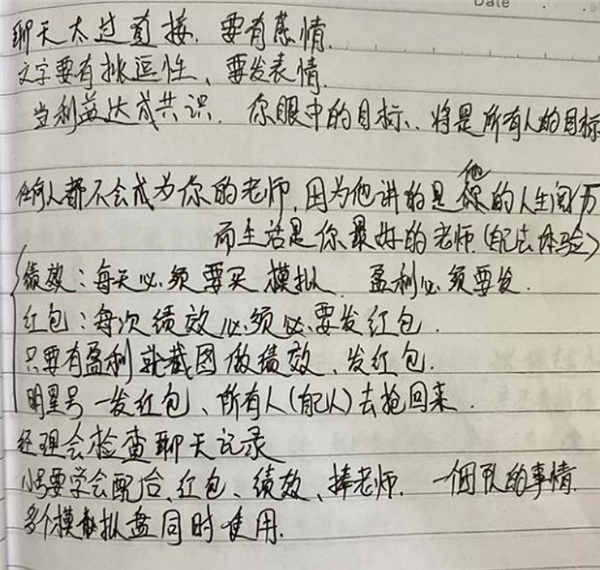 Date
聊天太过直接. 要有感情.
文字要有挑逗性、要发表情.
当利益达成共识. 你眼中的目标、将是所有人的目标
任何人都不会成为你的老师. 因为他讲的是他的人生阅历
而生活是你最好的老师. (自己去体验)
绩效: 每天必须要买模拟. 盈利必须要发.
红包: 每次绩效必须必要发红包.
只要有盈利就截图做绩效、发红包.
明星号一发红包、所有人(自己人)去抢回来.
经理会检查聊天记录
小号要学会配合、红包、绩效、捧老师. 一个团队的事情.
多个模拟盘同时使用.